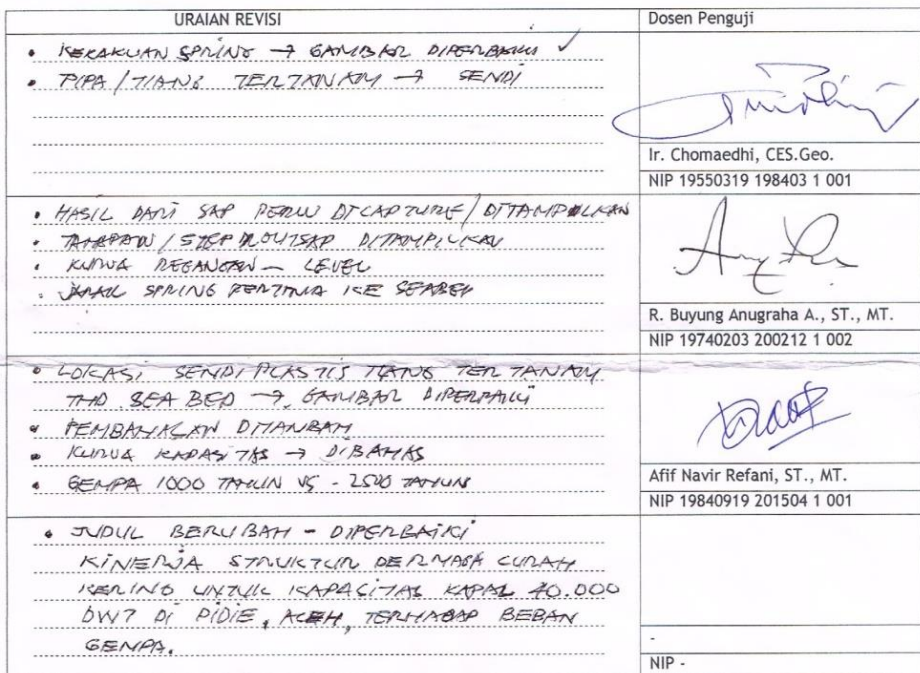 URAIAN REVISI
Dosen Penguji
• KEKAKUAN SPRING → GAMBAR DIPERBAIKI ✓
• PIPA / TIANG TERTANAM → SENDI
Ir. Chomaedhi, CES.Geo.
NIP 19550319 198403 1 001
• HASIL DARI SAP PERLU DICAPTURE / DITAMPILKAN
• TAHAPAN / STEP DITAMPILKAN
• KURVA REGANGAN - LEVEL
• JARAK SPRING PERTAMA KE SEABED
R. Buyung Anugraha A., ST., MT.
NIP 19740203 200212 1 002
• LOKASI SENDI PLASTIS TIANG TERTANAM
THD SEA BED → GAMBAR DIPERBAIKI
• PEMBAHASAN DITAMBAH
• KURVA KAPASITAS → DIBAHAS
• GEMPA 1000 TAHUN VS - 2500 TAHUN
Afif Navir Refani, ST., MT.
NIP 19840919 201504 1 001
• JUDUL BERUBAH - DIPERBAIKI
KINERJA STRUKTUR DERMAGA CURAH
KERING UNTUK KAPASITAS KAPAL 40.000
DWT DI PIDIE, ACEH, TERHADAP BEBAN
GEMPA.
-
NIP -